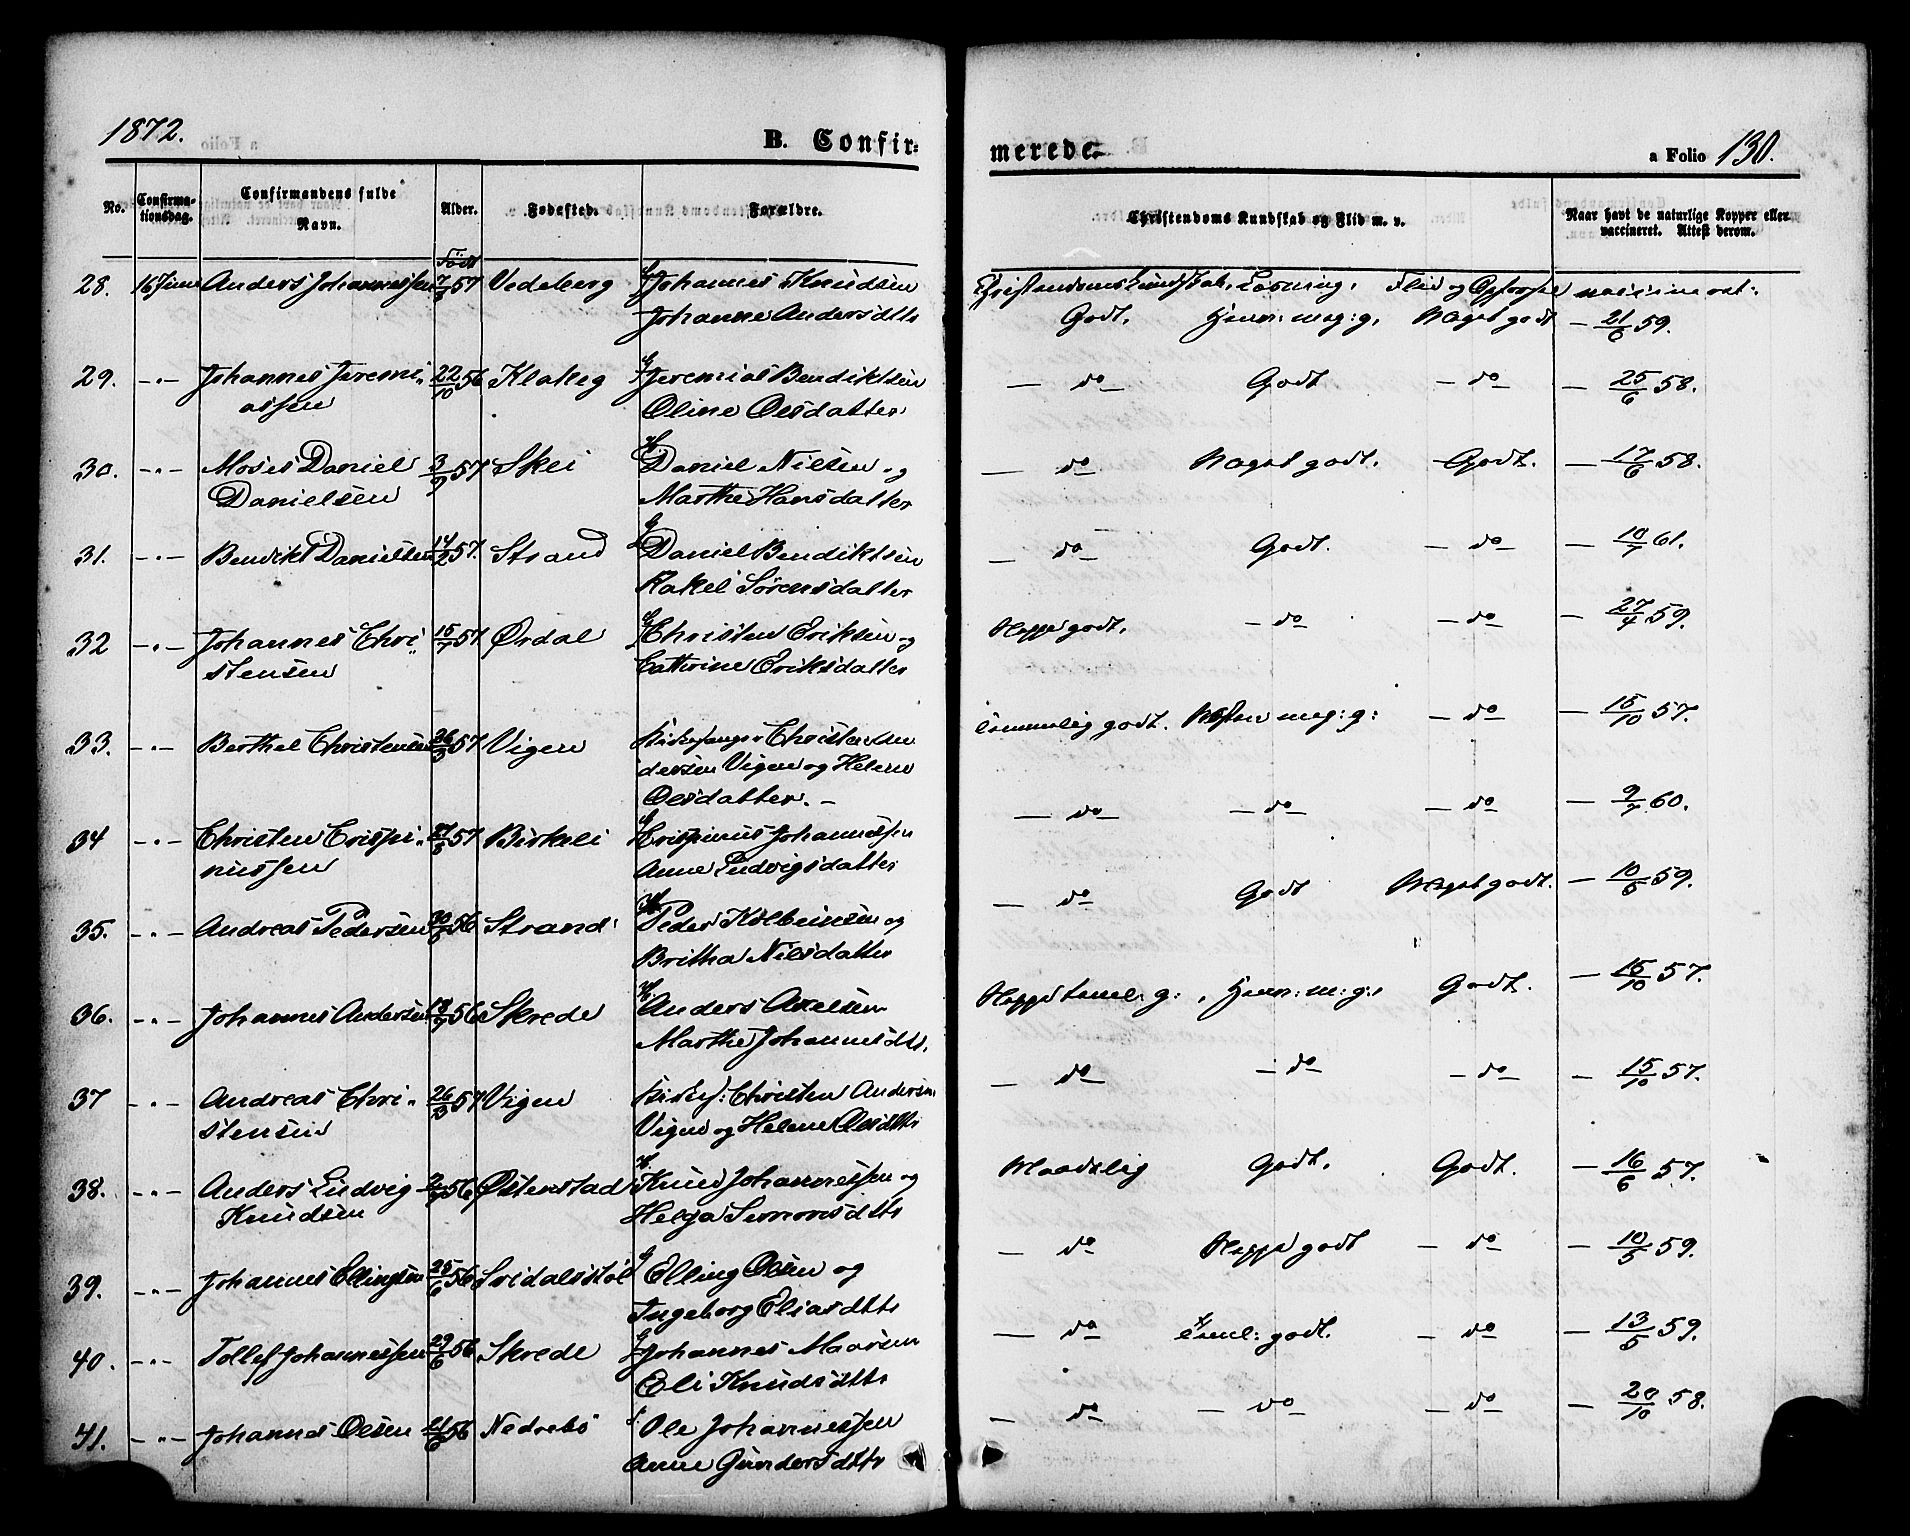 1872.
B. Confir-
merede.
a Folio 130.
No.
Confirma-
tionsdag.
Confirmandens fulde
Navn.
Alder.
Fødested.
Forældre.
Christendoms Kundskab og Flid m. v.
Naar havt de naturlige Kopper eller
vaccineret. Attest derom.
Født
28. 16 Juni Anders Johannessen 57 Vedeberg Johannes Knudsen
Johanne Andersdtr
Christendomskundskab, Læsning, Flid og Opførsel vaccineret:
Godt. Meget godt — 21/6 59.
29. -"- Johannes Jeremi- 22/10 56 Klakeg Jeremias Bendiktsen
assen Oline Olsdatter
— do — Godt — do — — 25/6 58.
30. -"- Moses Daniel 3/7 57 Skei Daniel Nilsen og
Danielsen Marthe Hansdatter
— do — Meget godt. Godt. — 17/6 58.
31. -"- Bendikt Danielsen 14/2 57. Strand Daniel Bendiktsen
Rakel Sørensdatter
— do — Godt. — do — — 10/7 61.
32 -"- Johannes Chri- 15/7 57 Ørdal Christen Eriksen og
stensen Cathrine Eriksdatter
Neppe godt. — do — — do — — 27/4 59.
33. -"- Berthel Christensen 26/3 57 Vigen Kirkesanger Christen An
dersen Vigen og Helene
Olsdatter. —
Temmelig godt. Næsten meg: g: — do — — 15/10 57.
34 -"- Christen Crispi- 57 Birkeli Crispinus Johannessen
nussen Anne Ludvigsdatter
— do — — do — — do — — 9/7 60.
35. -"- Andreas Pedersen 56 Strand Peder Kolbeinsen og
Britha Nilsdatter
— do — Godt Meget godt. — 10/5 59.
36. -"- Johannes Andersen 56 Skrede Anders Axelsen
Marthe Johannesdtr.
Neppe teml: g: Godt. — 15/10 57.
37 -"- Andreas Chri- 26/3 57 Vigen Kirkes: Christen Andersen
stensen Vigen og Helene Olsdtr
— do — — do — — do — — 15/10 57.
38. -"- Anders Ludvig 56 Østenstad Knud Johannessen og
Knudsen Helga Simonsdtr
Maadelig Godt. Godt. — 16/6 57.
39. -"- Johannes Ellingsen 25/6 56 Svidalsstøl Elling Olsen og
Ingeborg Eliasdtr
— do — Neppe godt — do — — 10/5 59.
40. -"- Tollef Johannessen 29/6 56 Skrede Johannes Maarsen
Eli Knudsdtr
— do — teml: godt. — do — — 13/5 59.
41. -"- Johannes Olsen 56 Nedrebø Ole Johannessen
Anne Gundersdtr
— do — — do — — do — — 20/10 58.